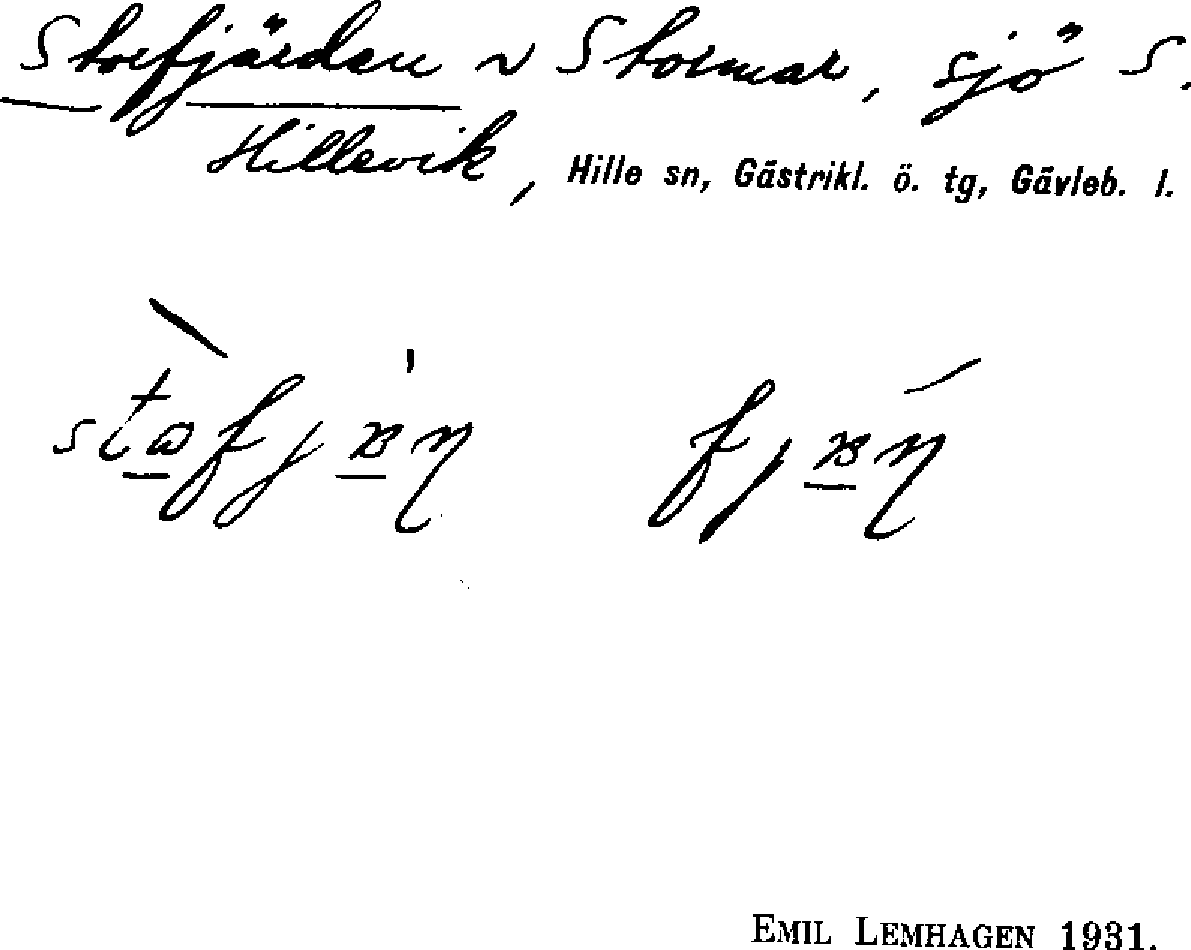 Storfjärden ~ Stormar, sjö S.
Hillevik, Hille sn, Gästrikl. ö. tg, Gävleb. l.
EMIL LEMHAGEN 1931.